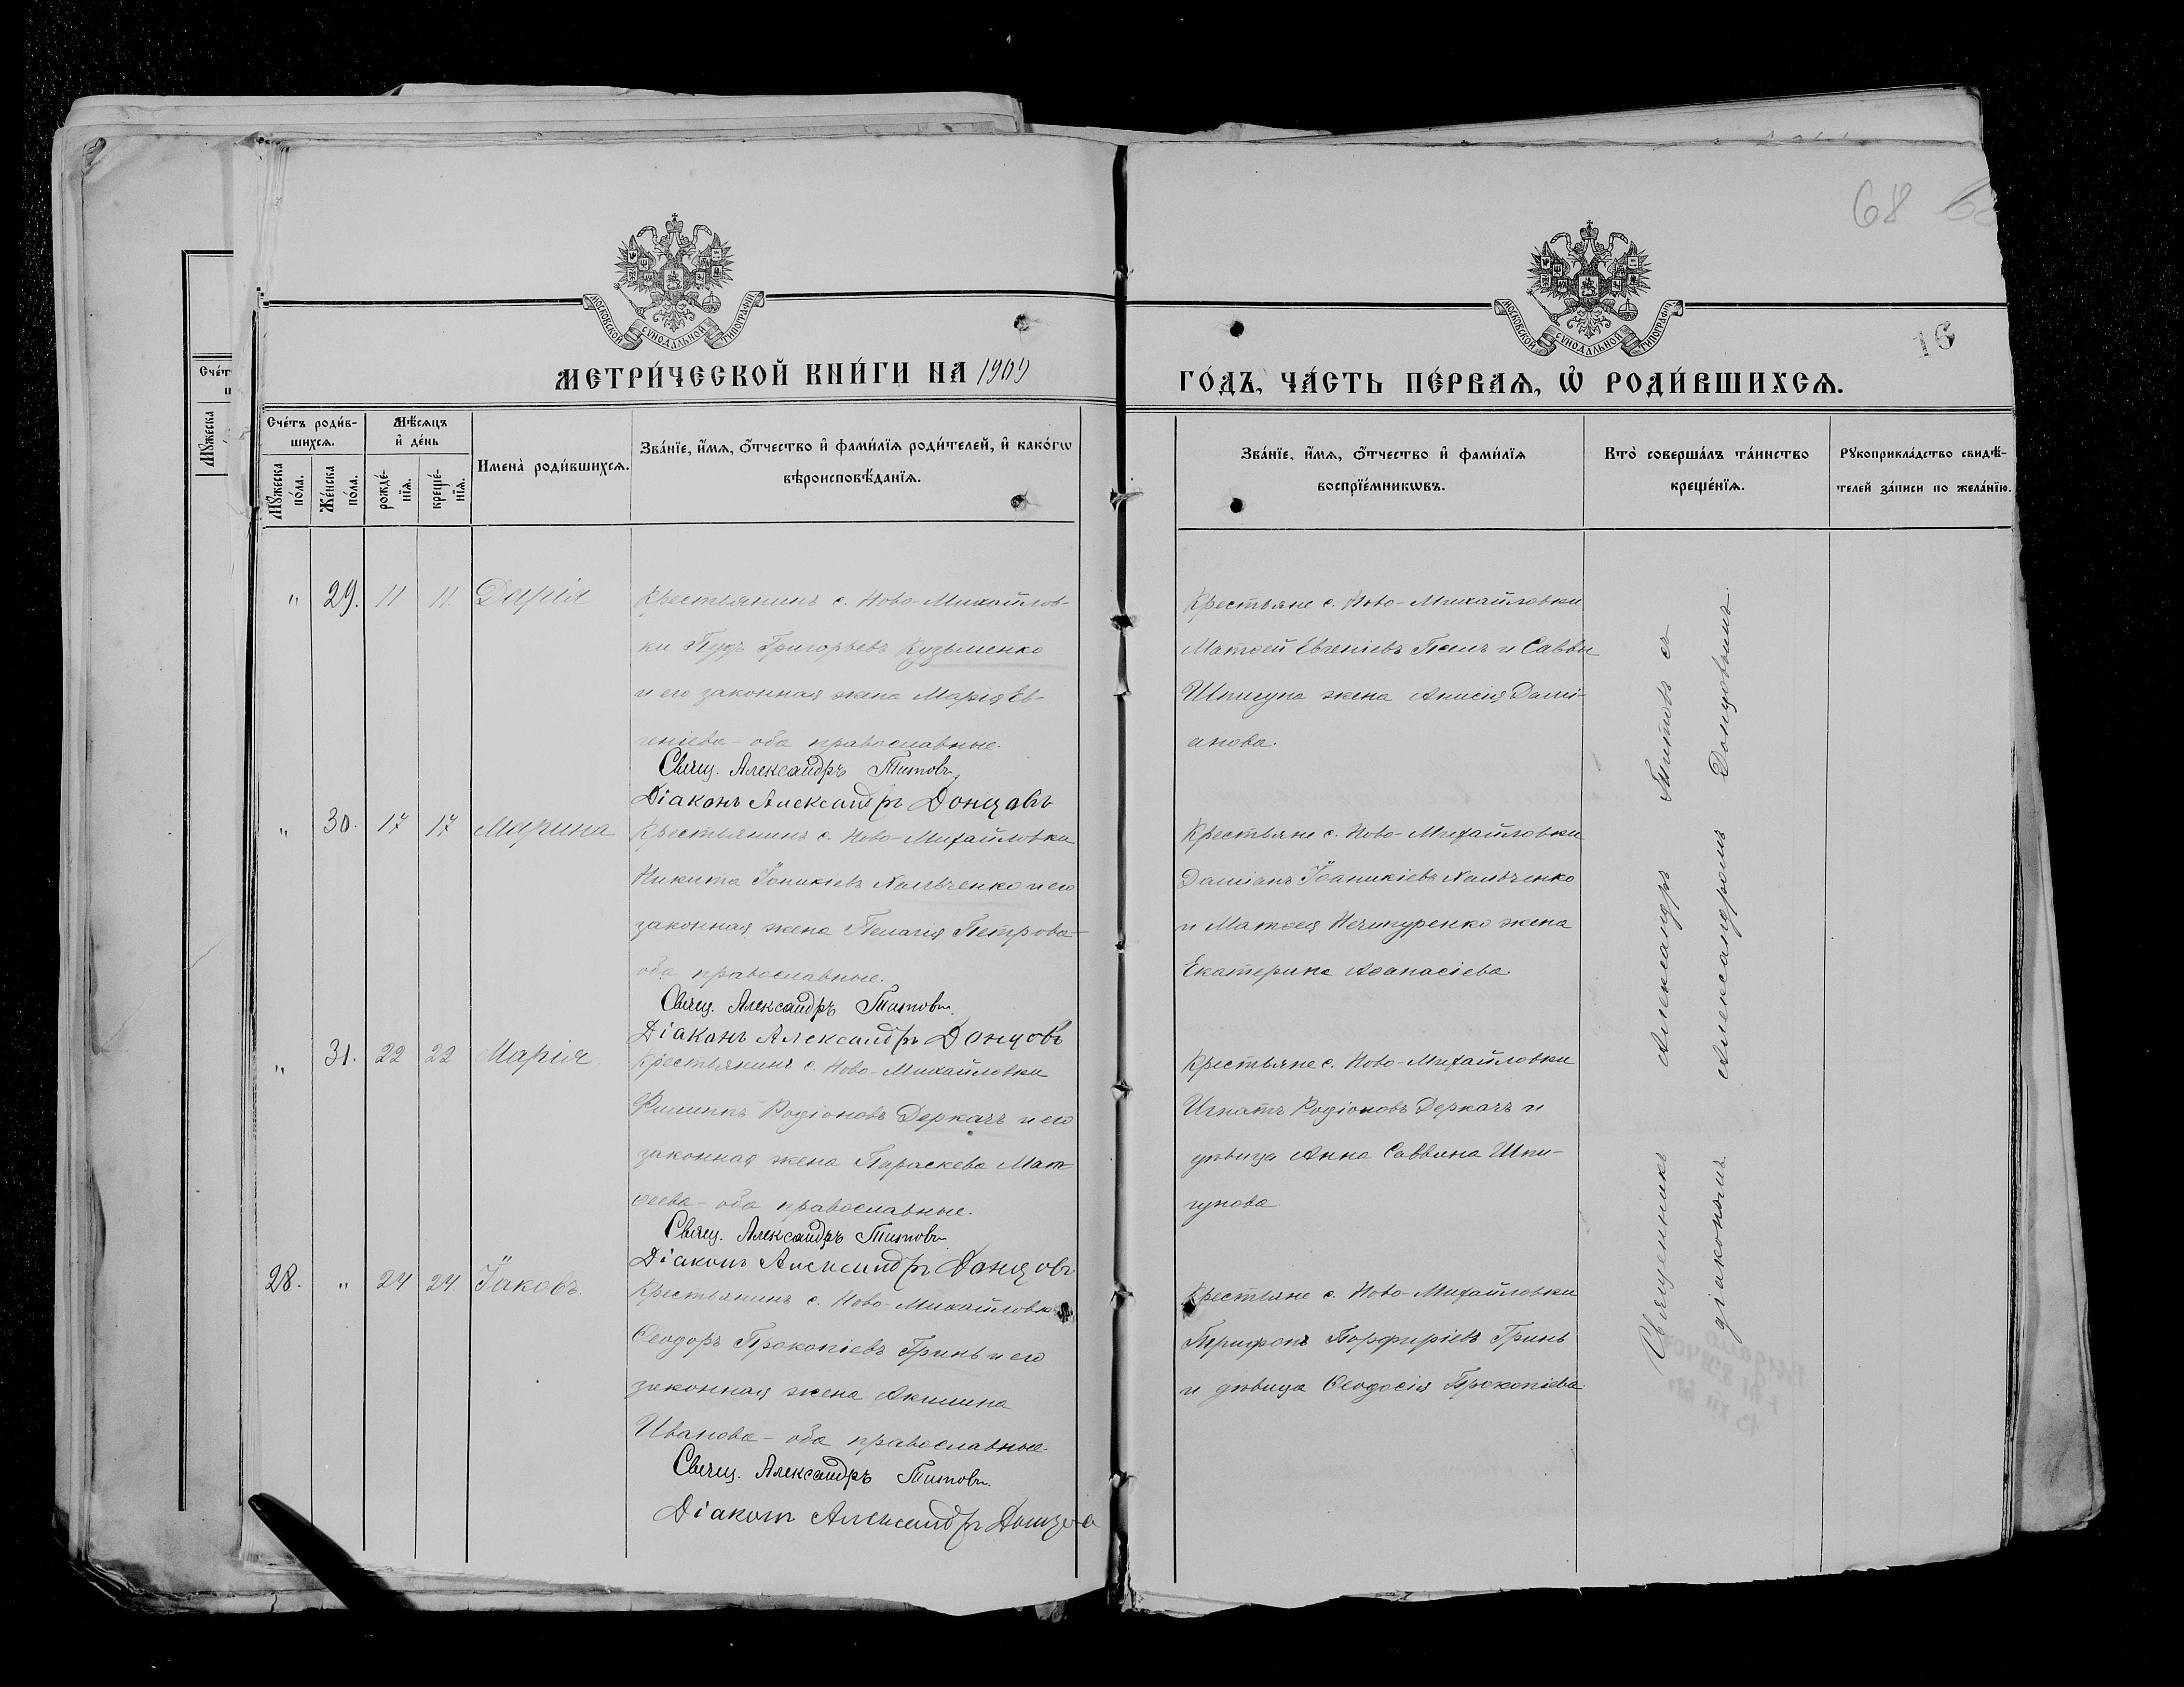 68
МОСКОВСКОЙ СѴНОДАЛЬНОЙ ТИПОГРАФІИ
МОСКОВСКОЙ СѴНОДАЛЬНОЙ ТИПОГРАФІИ
16
МЕТРИ́ЧЕСКОЙ КНИ́ГИ НА 1909
ГО́ДЪ, ЧА́СТЬ ПЕ́РВАЯ, Ѡ҆ РОДИ́ВШИХСЯ.
Сче́тъ роди́в-
шихся.
Мѣ́сяцъ
и҆ де́нь
Мꙋ́жеска по́ла.
Же́нска по́ла.
рожде́-
нїя.
креще́-
нїя.
Имена̀ роди́вшихся.
Зва́нїе, и҆́мя, ѻ҆́тчество и҆ фами́лїя роди́телей, и҆ како́гѡ
вѣроисповѣ́данїя.
Зва́нїе, и҆́мя, ѻ҆́тчество и҆ фами́лїя
воспрїе́мникѡвъ.
Кто̀ соверша́лъ та́инство
креще́нїя.
Рꙋкоприкла́дство свидѣ́-
телей за́писи по жела́нїю.
" 29. 11 11. Дарія
Крестьянинъ с. Ново-Михайлов-
ки Пудъ Григорьевъ Кузьменко
и его законная жена Марія Ев-
геніева - оба православные.
Свящ. Александръ Титовъ.
Діаконъ Александръ Донцовъ
Крестьяне с. Ново-Михайловки
Матѳей Евгеніевъ и Саввы
Шпигуна жена Анисія Дамі-
анова.
" 30. 17 17 Марина
Крестьянинъ с. Ново-Михайловки
Никита Іоникіевъ и его
законная жена Пелагія Петрова -
оба православные.
Свящ. Александръ Титовъ.
Діаконъ Александръ Донцовъ
Крестьяне с. Ново-Михайловки
Даміанъ Іоаникіевъ
и Матѳея Нечипуренко жена
Екатерина Аѳанасіева.
" 31. 22 22 Марія
Крестьянинъ с. Ново-Михайловки
Филиппъ Родіоновъ Деркачъ и его
законная жена Параскева Мат-
ѳеева - оба православные.
Свящ. Александръ Титовъ.
Діаконъ Александръ Донцовъ
Крестьяне с. Ново-Михайловки
Игнатъ Родіоновъ Деркачъ и
дѣвица Анна Саввина Шпи-
гунова.
28. " 24 24. Іаковъ.
Крестьянинъ с. Ново-Михайловки
Ѳеодоръ Прокопіевъ Гринь и его
законная жена Акилина
Иванова - оба православные.
Свящ. Александръ Титовъ.
Діаконъ Александръ Донцовъ
Крестьяне с. Ново-Михайловки
Трифонъ Порфиріевъ Гринь
и дѣвица Ѳеодосія Прокопіева.
Священникъ Александръ Титовъ съ
діакономъ Александромъ Донцовымъ.
Сче́т
Мꙋ́жеска